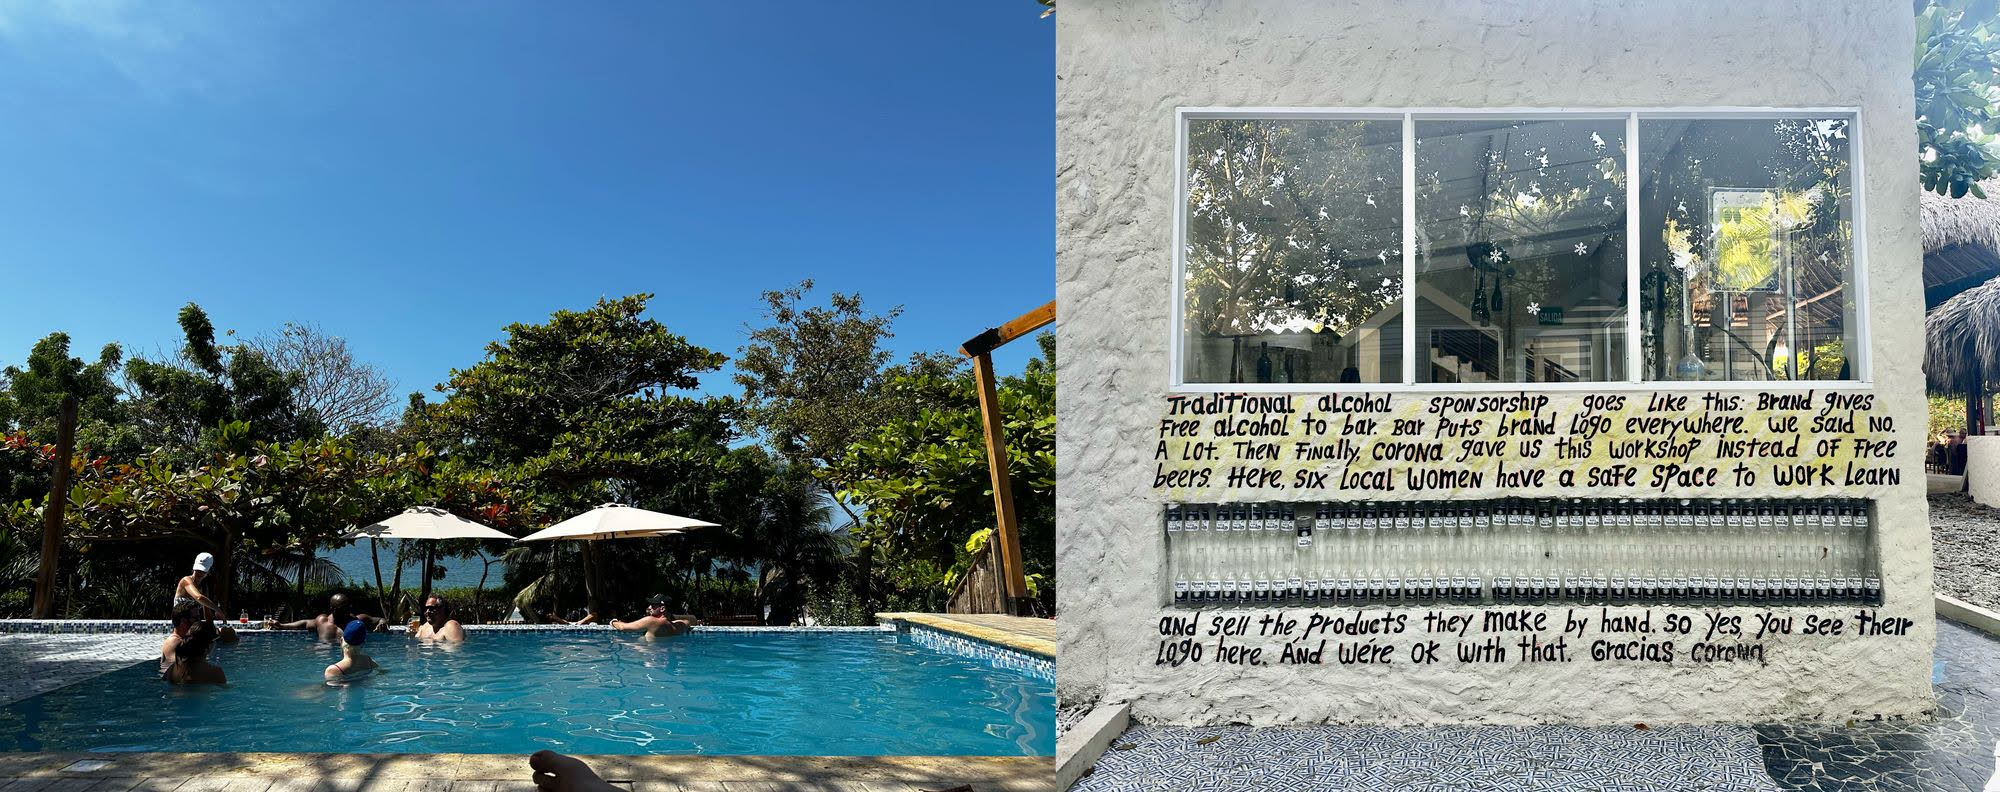 SALIDA
Traditional alcohol sponsorship goes like this: Brand gives
Free alcohol to bar. Bar puts brand logo everywhere. We said no.
A lot. Then Finally, corona gave us this workshop instead of Free
beers. Here, six local women have a safe space to work learn
and sell the products they make by hand. So yes, you see their
logo here. And we're ok with that. Gracias corona